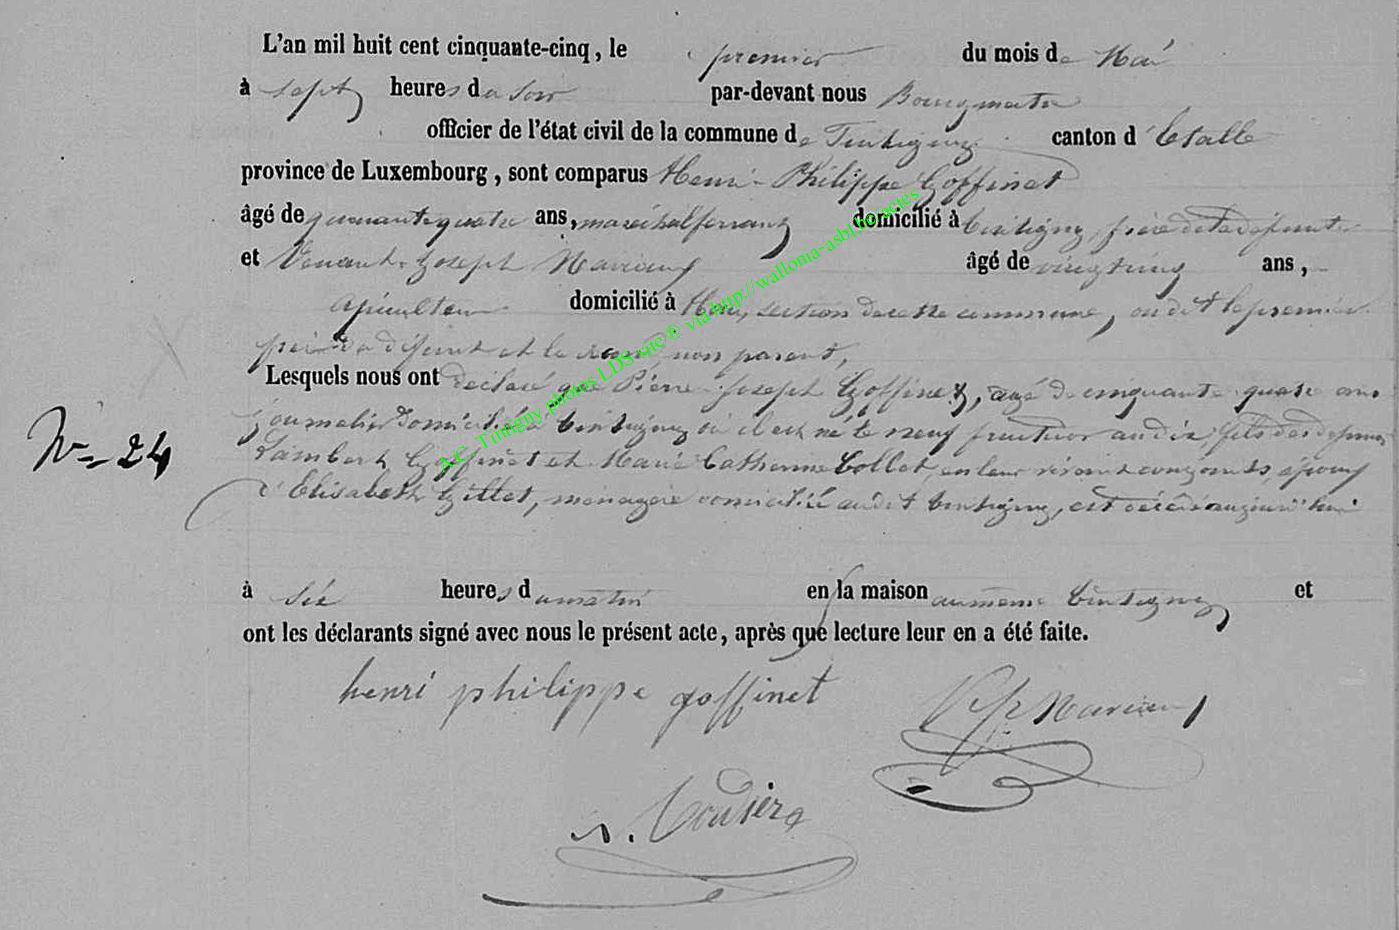 L'an mil huit cent cinquante-cinq, le premier du mois de Mai
à sept heures du soir par-devant nous Bourgmestre
officier de l'état civil de la commune de Tintigny canton d'Etalle
province de Luxembourg, sont comparus Henri-Philippe Goffinet
âgé de quarante quatre ans, maréchal ferrant domicilié à Tintigny, frère de la défunte
et Venant-Joseph Navaux âgé de vingt cinq ans,
domicilié à section de cette commune, on dit le premier
frère du défunt et le non parent,
Lesquels nous ont déclaré que Pierre-Joseph Goffinet, agé de cinquante quatre ans
N° 24
journalier domicilié à Tintigny où il est né le neuf fructidor an dix fils des défunts
Lambert Goffinet et Marie Catherine Collet, en leur vivant conjoints, époux
d'Elisabeth Gillet, ménagère domiciliée audit Tintigny, est décédé aujourd'hui
à six heures du matin en la maison au même Tintigny et
ont les déclarants signé avec nous le présent acte, après que lecture leur en a été faite.
henri philippe goffinet
A.E. Tintigny photos LDS site® via http://walloma-asbl.be/actes